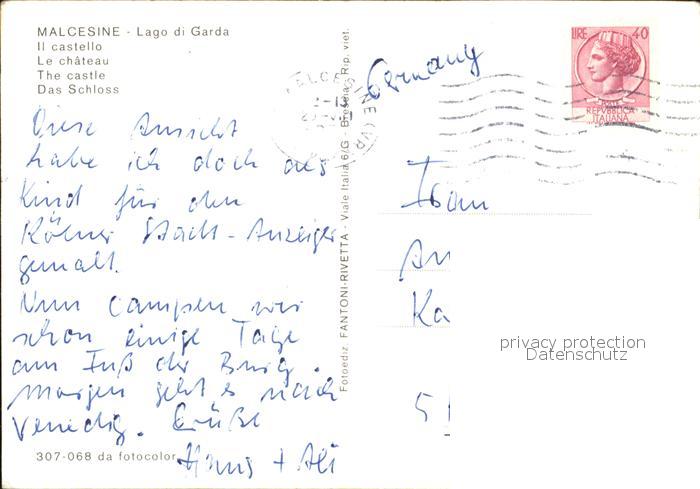 MALCESINE - Lago di Garda
Il castello
Le château
The castle
Das Schloss
Diese Ansicht
habe ich doch als
Kind für den
Kölner Stadt-Anzeiger
gemalt.
Nun campen wir
schon einige Tage
am Fuß der Burg.
Morgen geht es nach
Venedig. Grüße
Hans +
307-068 da fotocolor
Fotoediz. FANTONI-RIVETTA - Viale Italia 6/G - Brescia - Rip. viet.
Germany
LIRE 40
POSTE
REPVBBLICA
ITALIANA
An
Ka
5
privacy protection
Datenschutz